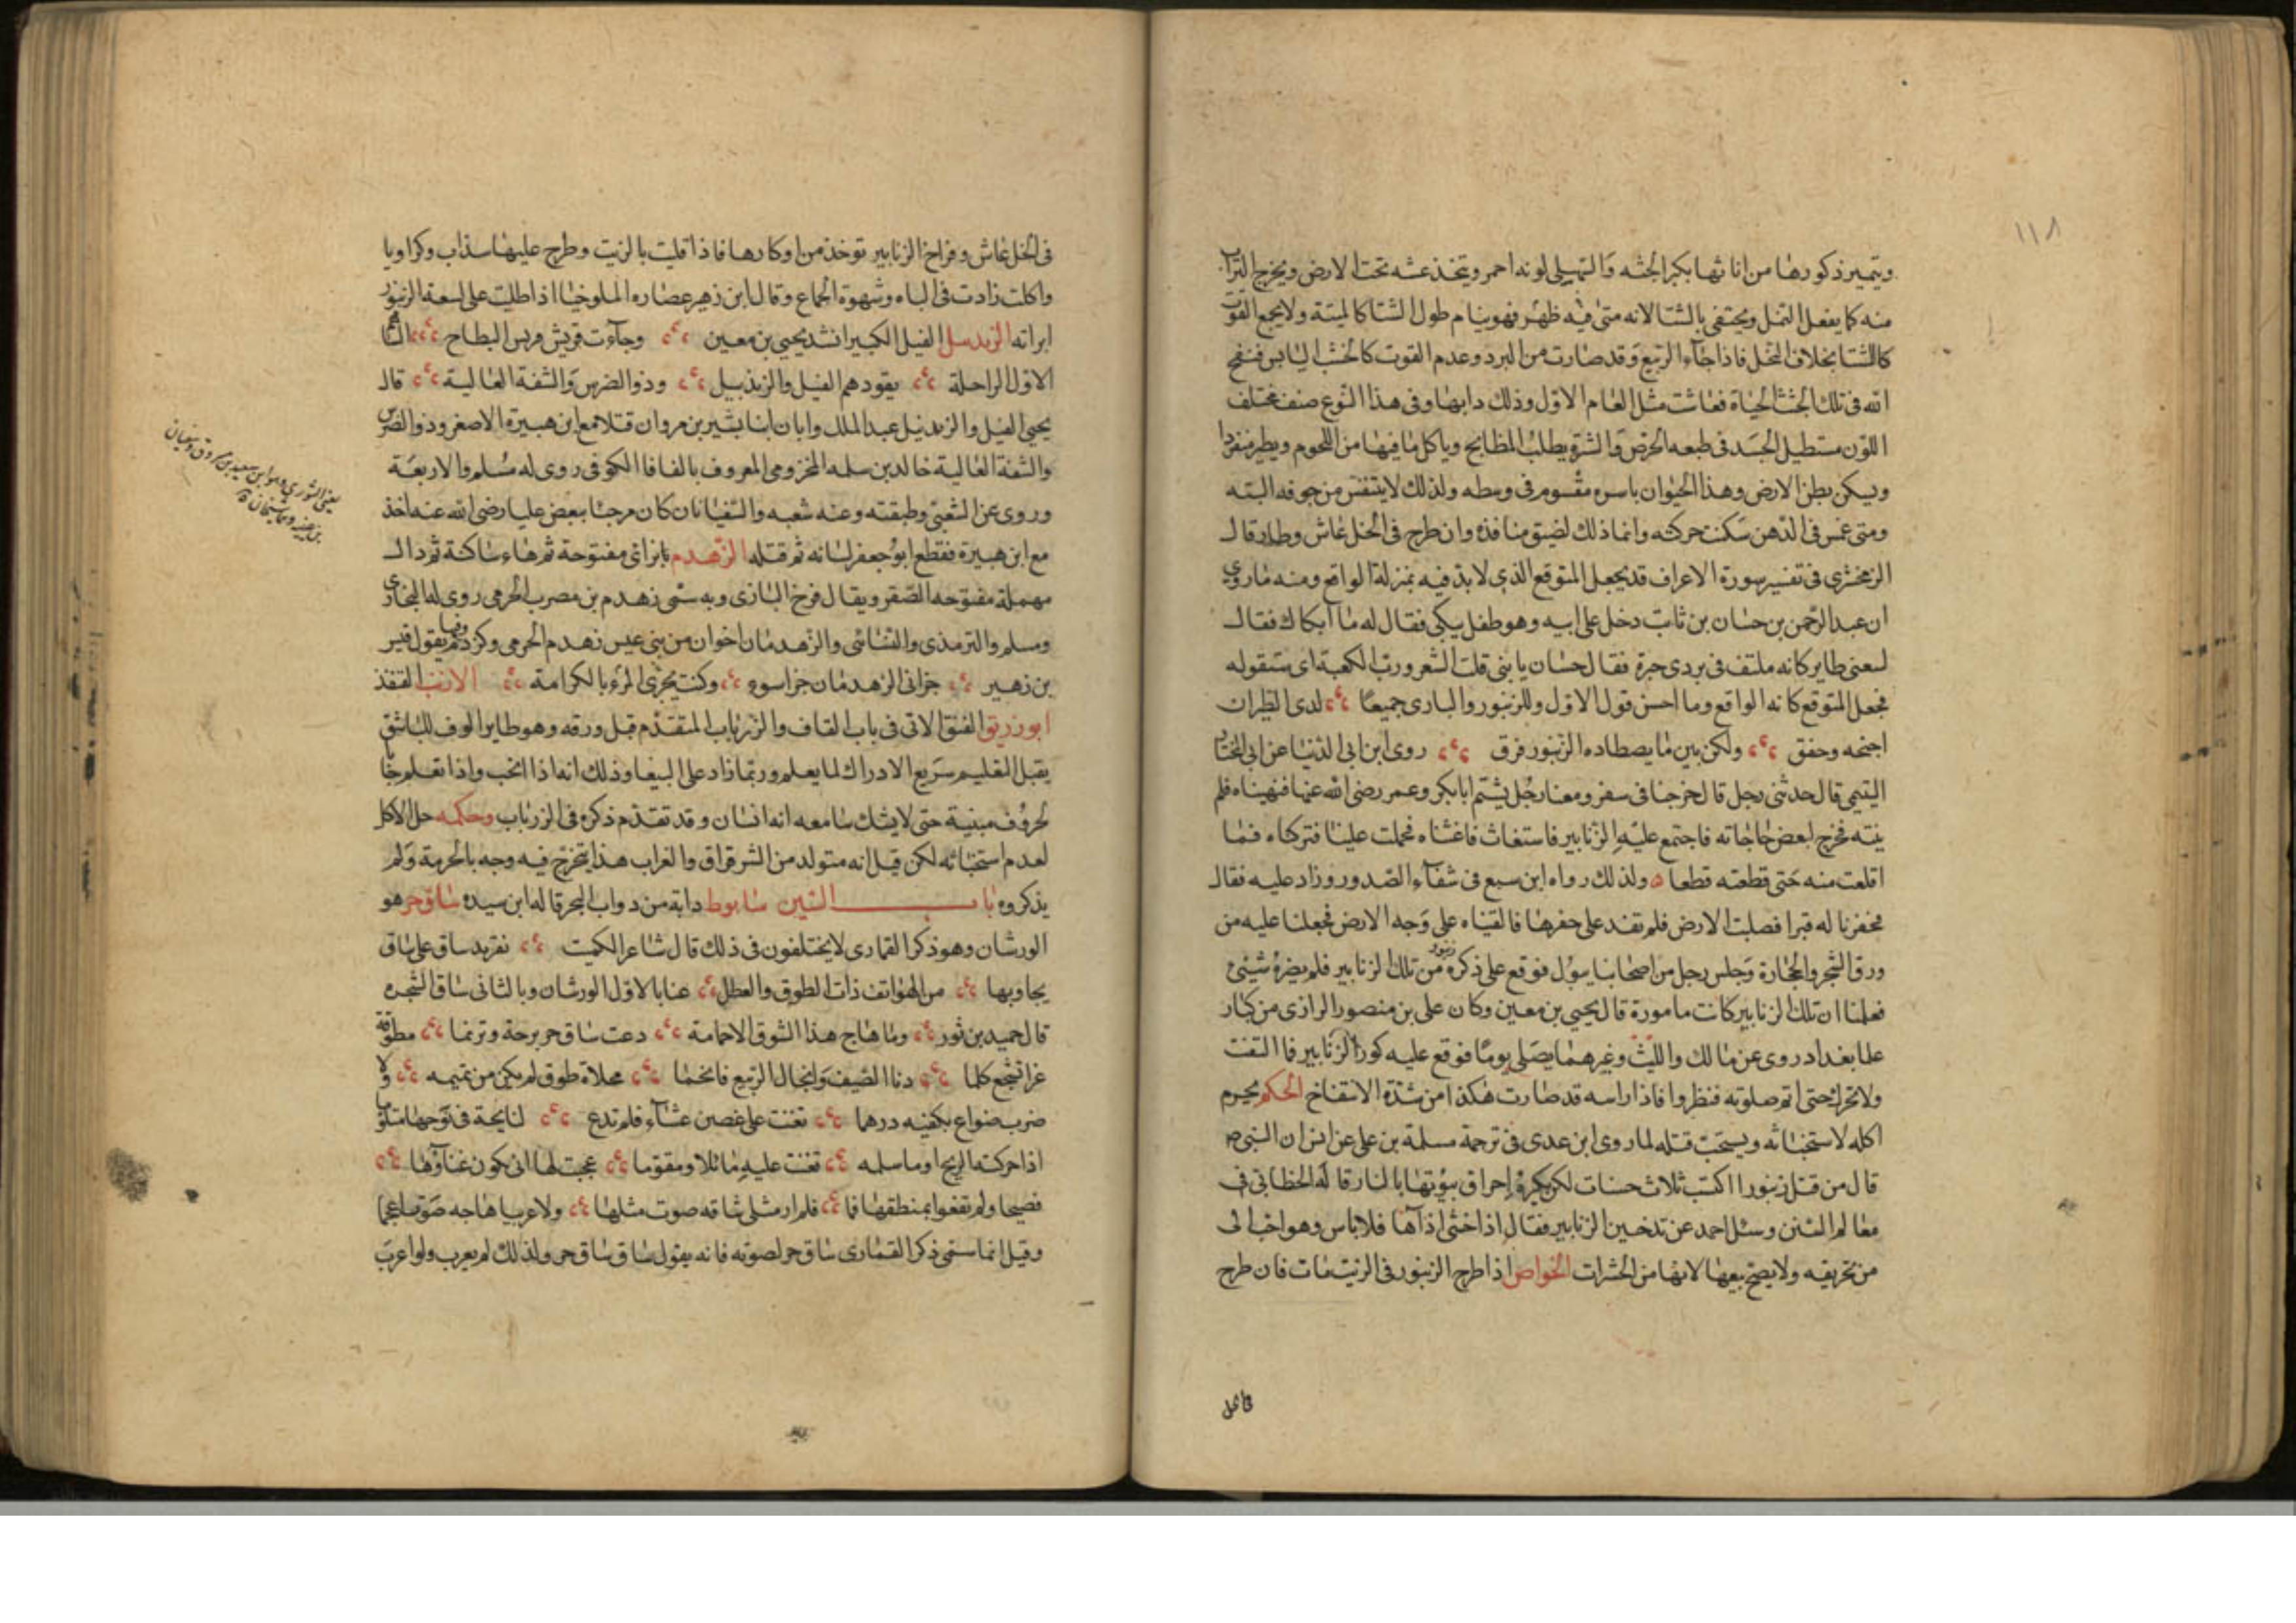 ١١٨
ويتميز ذكورها من اناثها بكبر الجثه والسهيلى لونه احمر ويتخذ عشه تحت الارض ويخرج التراب
منه كما يفعل النمل ويختفى بالشتا لانه متى فيه ظهر فهو ينام طول الشتا كالميتة ولا يجمع القوت
كالشتا بخلاف النحل فاذا جاء الربيع وقد صارت من البرد وعدم القوت كالخشب اليابس فنفخ
الله فى تلك الجثث الحياة فعاشت مثل العام الاول وذلك دابها وفى هذا النوع صنف مختلف
اللون مستطيل الجسد فى طبعه الحرص والشره يطلب المطابخ وياكل ما فيها من اللحوم ويطير منفردا
ويسكن بطن الارض وهذا الحيوان باسره مقسوم فى وسطه ولذلك لا يتنفس من جوفه البته
ومتى غمس فى الدهن سكنت حركته وانما ذلك لضيق منافذه وان طرح فى الخل عاش وطار قال
الزمخشرى فى تفسير سورة الاعراف قد يجعل المتوقع الذى لا بد فيه بمنزلة الواقع ومنه ما روى
ان عبد الرحمن بن حسان بن ثابت دخل على ابيه وهو طفل يبكى فقال له ما ابكاك فقال
لسعنى طاير كانه ملتف فى بردى حبرة فقال حسان يا بنى قلت الشعر ورب الكعبة اى ستقوله
فجعل المتوقع كانه الواقع وما احسن قول الاول وللزنبور والبازى جميعا لدى الطيران
اجنحه وخفق ولكن بين ما يصطاده الزنبور فرق روى ابن ابى الدنيا عن ابى المختار
التيمى قال حدثنى رجل قال خرجنا فى سفر ومعنا رجل يشتم ابا بكر وعمر رضى الله عنهما فنهيناه فلم
ينته فخرج لبعض حاجاته فاجتمع عليه الزنابير فاستغاث فاغثناه فحملت علينا فتركناه فما
اقلعت منه حتى قطعته قطعا ولذلك رواه ابن سبع فى شفآء الصدور وزاد عليه فقال
فحفرنا له قبرا فصلبت الارض فلم نقدر على حفرها فالقيناه على وجه الارض فجعلنا عليه من
ورق الشجر والحجارة وجلس رجل من اصحابنا يبول فوقع على ذكره زنبور من تلك الزنابير فلم يضره شيئ
فعلمنا ان تلك الزنابير كانت مامورة قال يحيى بن معين وكان على بن منصور الرازى من كبار
علما بغداد روى عن مالك والليث وغيرهما يصلى يوما فوقع عليه كور الزنابير فما التفت
ولا تحرك حتى اتم صلوته فنظروا فاذا راسه قد صارت هكذا من شدة الانتفاخ الحكم يحرم
اكله لاستخباثه ويستحب قتله لما روى ابن عدى فى ترجمة مسلمة بن على عن انس ان النبى ص
قال من قتل زنبورا اكتسب ثلاث حسنات لكن يكره احراق بيوتها بالنار قاله الخطابى فى
معالم السنن وسئل احمد عن تدخين الزنابير فقال اذا خشى اذاها فلا باس وهو احب الى
من تحريقه ولا يصح بيعها لانها من الحشرات الخواص اذا طرح الزنبور فى الزيت مات فان طرح
فى الخل عاش وفراخ الزنابير توخذ من اوكارها فاذا قليت بالزيت وطرح عليها سذاب وكراويا
واكلت زادت فى الباه وشهوة الجماع وقال ابن زهير عصاره الملوخيا اذا طليت على لسعة الزنبور
ابراته الزندبيل الفيل الكبير انشد يحيى بن معين وجآءت قريش قريش البطاح
الاول الراحلة يقودهم الفيل والزندبيل وذو الضرس والشفة العالية قال
يحيى الفيل والزندبيل عبد الملك وابان ابنا بشير بن مروان قتلا مع ابن هبيرة الاصغر وذو الضرس
والشفة العالية خالد بن سلمه المخزومى المعروف بالفافا الكوفى روى له مسلم والاربعة
وروى عن الشعبى وطبقته وعنه شعبه والسفيانان كان مرجئا يبغض عليا رضى الله عنه اخذ
مع ابن هبيرة فقطع ابو جعفر لسانه ثم قتله الزهدم بالزاى مفتوحة ثم هاء ساكنة ثم دال
مهملة مفتوحه الصقر ويقال فرخ البازى وبه سمى زهدم بن مصرب الجرمى روى له البخارى
ومسلم والترمذى والنسائى والزهدمان اخوان من بنى عبس زهدم الجرمى وكردم وفيهما يقول قيس
بن زهير جزانى الزهدمان جزا سوء وكنت يجزى المرء بالكرامة القنفذ
ابو زريق القيق الاتى فى باب القاف والزرياب المتقدم قبل ورقه وهو طاير الوف للناس
يقبل التعليم سريع الادراك لما يعلم وربما زاد على الببغا وذلك انه اذا انجب واذا تعلم جا
بحروف مبنية حتى لا يشك سامعه انه انسان وقد تقدم ذكره فى الزرياب وحكمه حل الاكل
لعدم استخباثه لكن قيل انه متولد من الشرقراق والغراب هذا يتخرج فيه وجه بالحرمة ولم
يذكروه باب السين سابوط دابة من دواب البحر قاله ابن سيده ساق حر هو
الورشان وهو ذكر القمارى لا يختلفون فى ذلك قال شاعر الكميت تغريد ساق على ساق
يجاوبها من الهواتف ذات الطوق والعطل عنا بالاول الورشان وبالثانى ساق الشجره
قال حميد بن ثور وما هاج هذا الشوق الا حمامة دعت ساق حر برحة وترنما مطوقة
غرا تسجع كلما دنا الصيف وانجال الربيع فانجما محلاة طوق لم يكن من تميمه ولا
ضرب صواع بكفيه درهما تغنت على غصن عشآء فلم تدع لنايحة فى نوحها متلوما
اذا حركته الريح او ماسله تغنت عليه مائلا ومقوما عجبت لها انى يكون غنآؤها
فصيحا ولم تفغر بمنطقها فما فلم ار مثلى شاقه صوت مثلها ولا عربيا هاجه صوت اعجما
وقيل انما سمى ذكر القمارى ساق حر لصوته فانه يقول ساق ساق حر ولذلك لم يعرب ولو اعرب